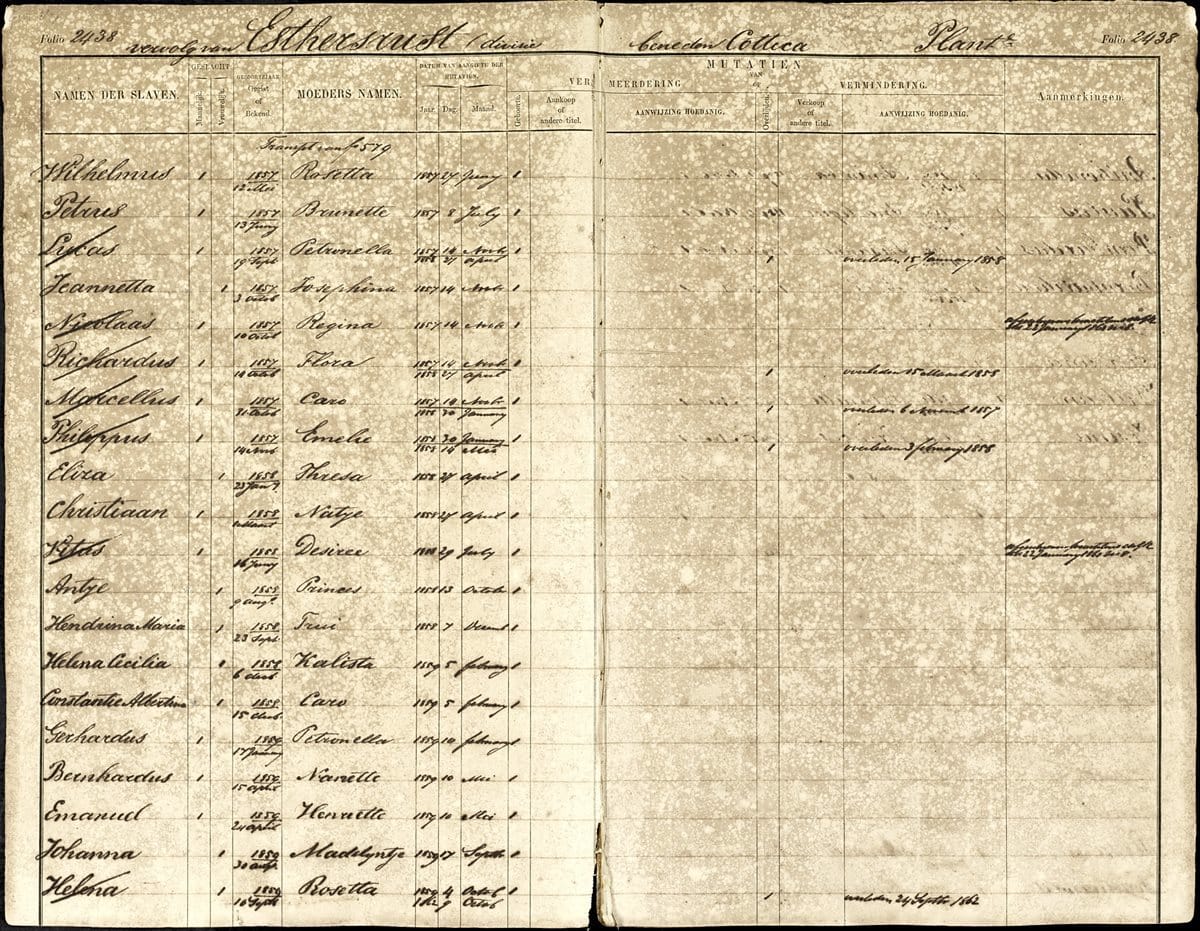 Folio 2438 vervolg van Esthersrust divisie beneden Cottica Plant.e Folio 2438
NAMEN DER SLAVEN. GESLACHT Mannelijk. Vrouwelijk. GEBOORTEJAAR Gegist of Bekend. MOEDERS NAMEN. DATUM VAN AANGIFTE DER MUTATIEN. Jaar. Dag. Maand. Geboorte. Aankoop of andere titel. VER MEERDERING AANWIJZING HOEDANIG. MUTATIEN VAN of Overlijden. Verkoop of andere titel. VERMINDERING. AANWIJZING HOEDANIG. Aanmerkingen.
Transpt van fo 579
Wilhelmus 1 1857 Rosetta 1857 27 Juny 1
12 Mei
Petrus 1 1857 Brunette 1857 8 July 1
13 Juny
Lucas 1 1857 Petronella 1857 14 Novb 1
19 Sept 1858 27 April 1 overleden 15 January 1858
Jeannetta 1 1857 Josephina 1857 14 Novb 1
3 Octob
Nicolaas 1 1857 Regina 1857 14 Novb 1
10 Octob
Richardus 1 1857 Flora 1857 14 Novb 1
14 Octob 1858 27 April 1 overleden 15 Maart 1858
Marcellus 1 1857 Caro 1857 14 Novb 1
31 Octob 1858 30 January 1 overleden 6 November 1857
Philippus 1 1857 Emelie 1858 30 January 1
14 Novb 1858 14 Mei 1 overleden 3 february 1858
Eliza 1 1858 Thresa 1858 27 April 1
23 Jany
Christiaan 1 1858 Natje 1858 27 April 1
Maart
Vitus 1 1858 Desiree 1858 29 July 1
16 Juny
Antje 1 1858 Princes 1858 13 October 1
9 Aug.t
Hendrina Maria 1 1858 Trui 1858 7 Decemb 1
23 Sept
Helena Cecilia 1 1858 Kalista 1859 5 february 1
6 decb
Constantie Albertina 1 1858 Caro 1859 5 february 1
15 decb
Gerhardus 1 1859 Petronella 1859 10 february 1
17 January
Bernhardus 1 1859 Nanette 1859 10 Mei 1
15 April
Emanuel 1 1859 Henriette 1859 10 Mei 1
24 April
Johanna 1 1859 Madelyntje 1859 17 Septb 1
30 Aug
Helena 1 1859 Rosetta 1859 4 Octob 1
10 Sept 1862 9 Octob 1 overleden 24 Septbr 1862